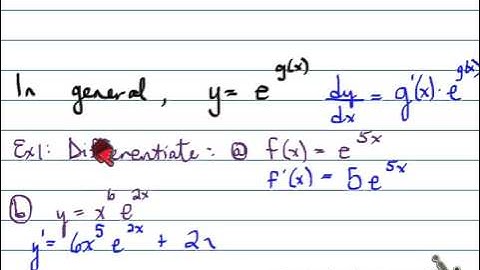 In general, y = e^{g(x)} dy/dx = g'(x) · e^{g(x)}
Ex1: Differentiate: ⓐ f(x) = e^{5x}
f'(x) = 5e^{5x}
ⓑ y = x^6 e^{2x}
y' = 6x^5 e^{2x} + 2